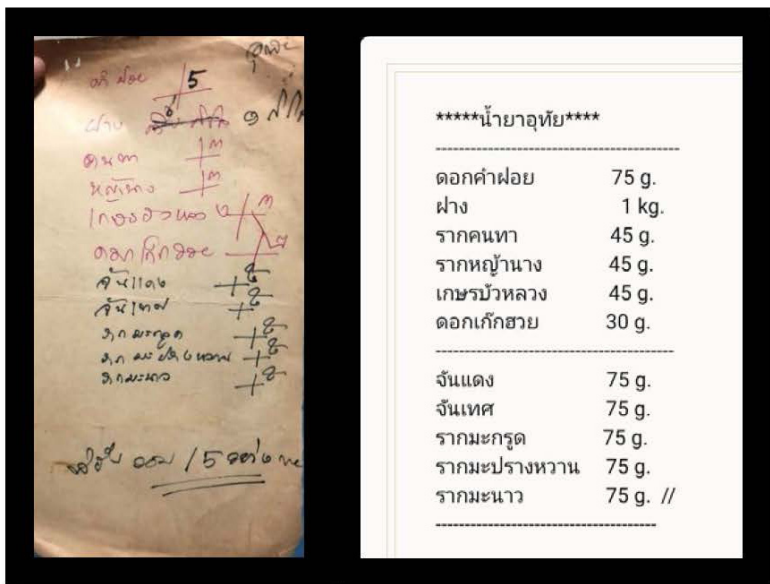 คำฝอย 5
ฝาง ๑ กิโล
คนทา ๓
หญ้านาง ๓
ดอกเก๊กฮวย
จันแดง
จันเทศ
รากมะกรูด
รากมะปรางหวาน
รากมะนาว
*****น้ำยาอุทัย****
ดอกคำฝอย 75 g.
ฝาง 1 kg.
รากคนทา 45 g.
รากหญ้านาง 45 g.
เกษรบัวหลวง 45 g.
ดอกเก๊กฮวย 30 g.
จันแดง 75 g.
จันเทศ 75 g.
รากมะกรูด 75 g.
รากมะปรางหวาน 75 g.
รากมะนาว 75 g. //